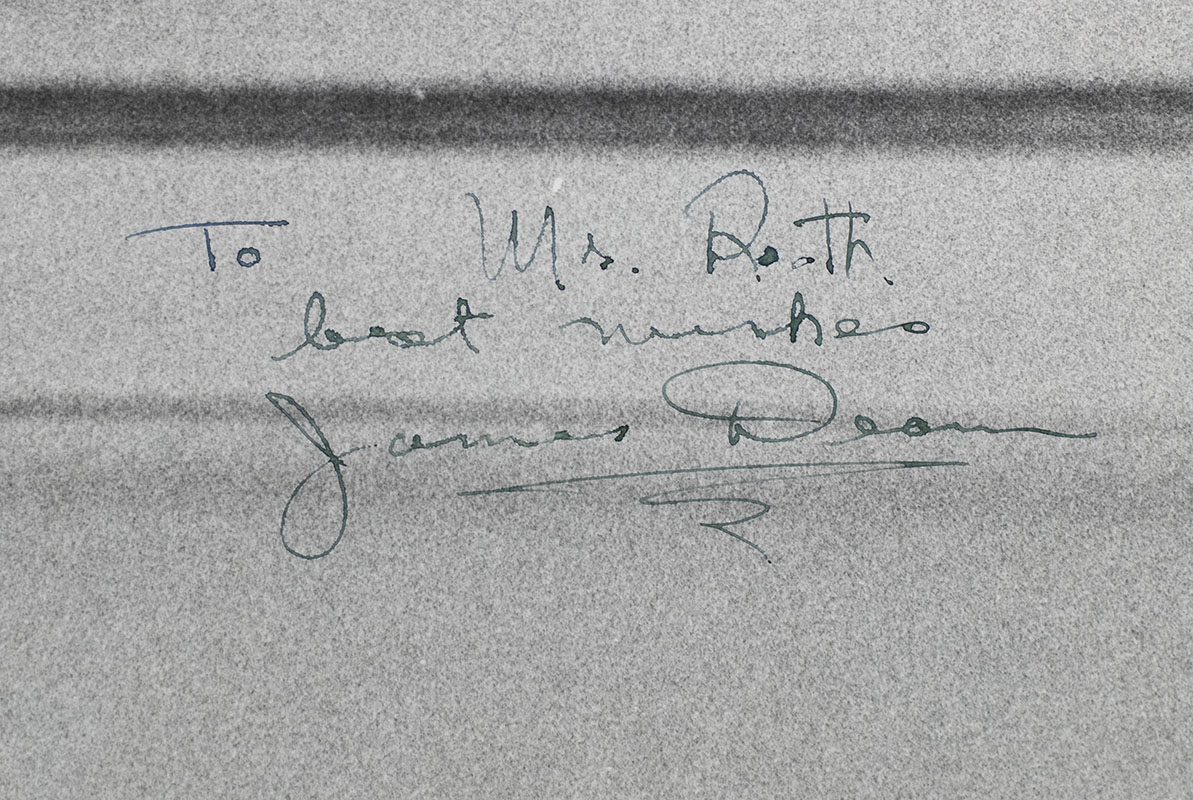 To Mr. Roth.
best wishes
James Dean